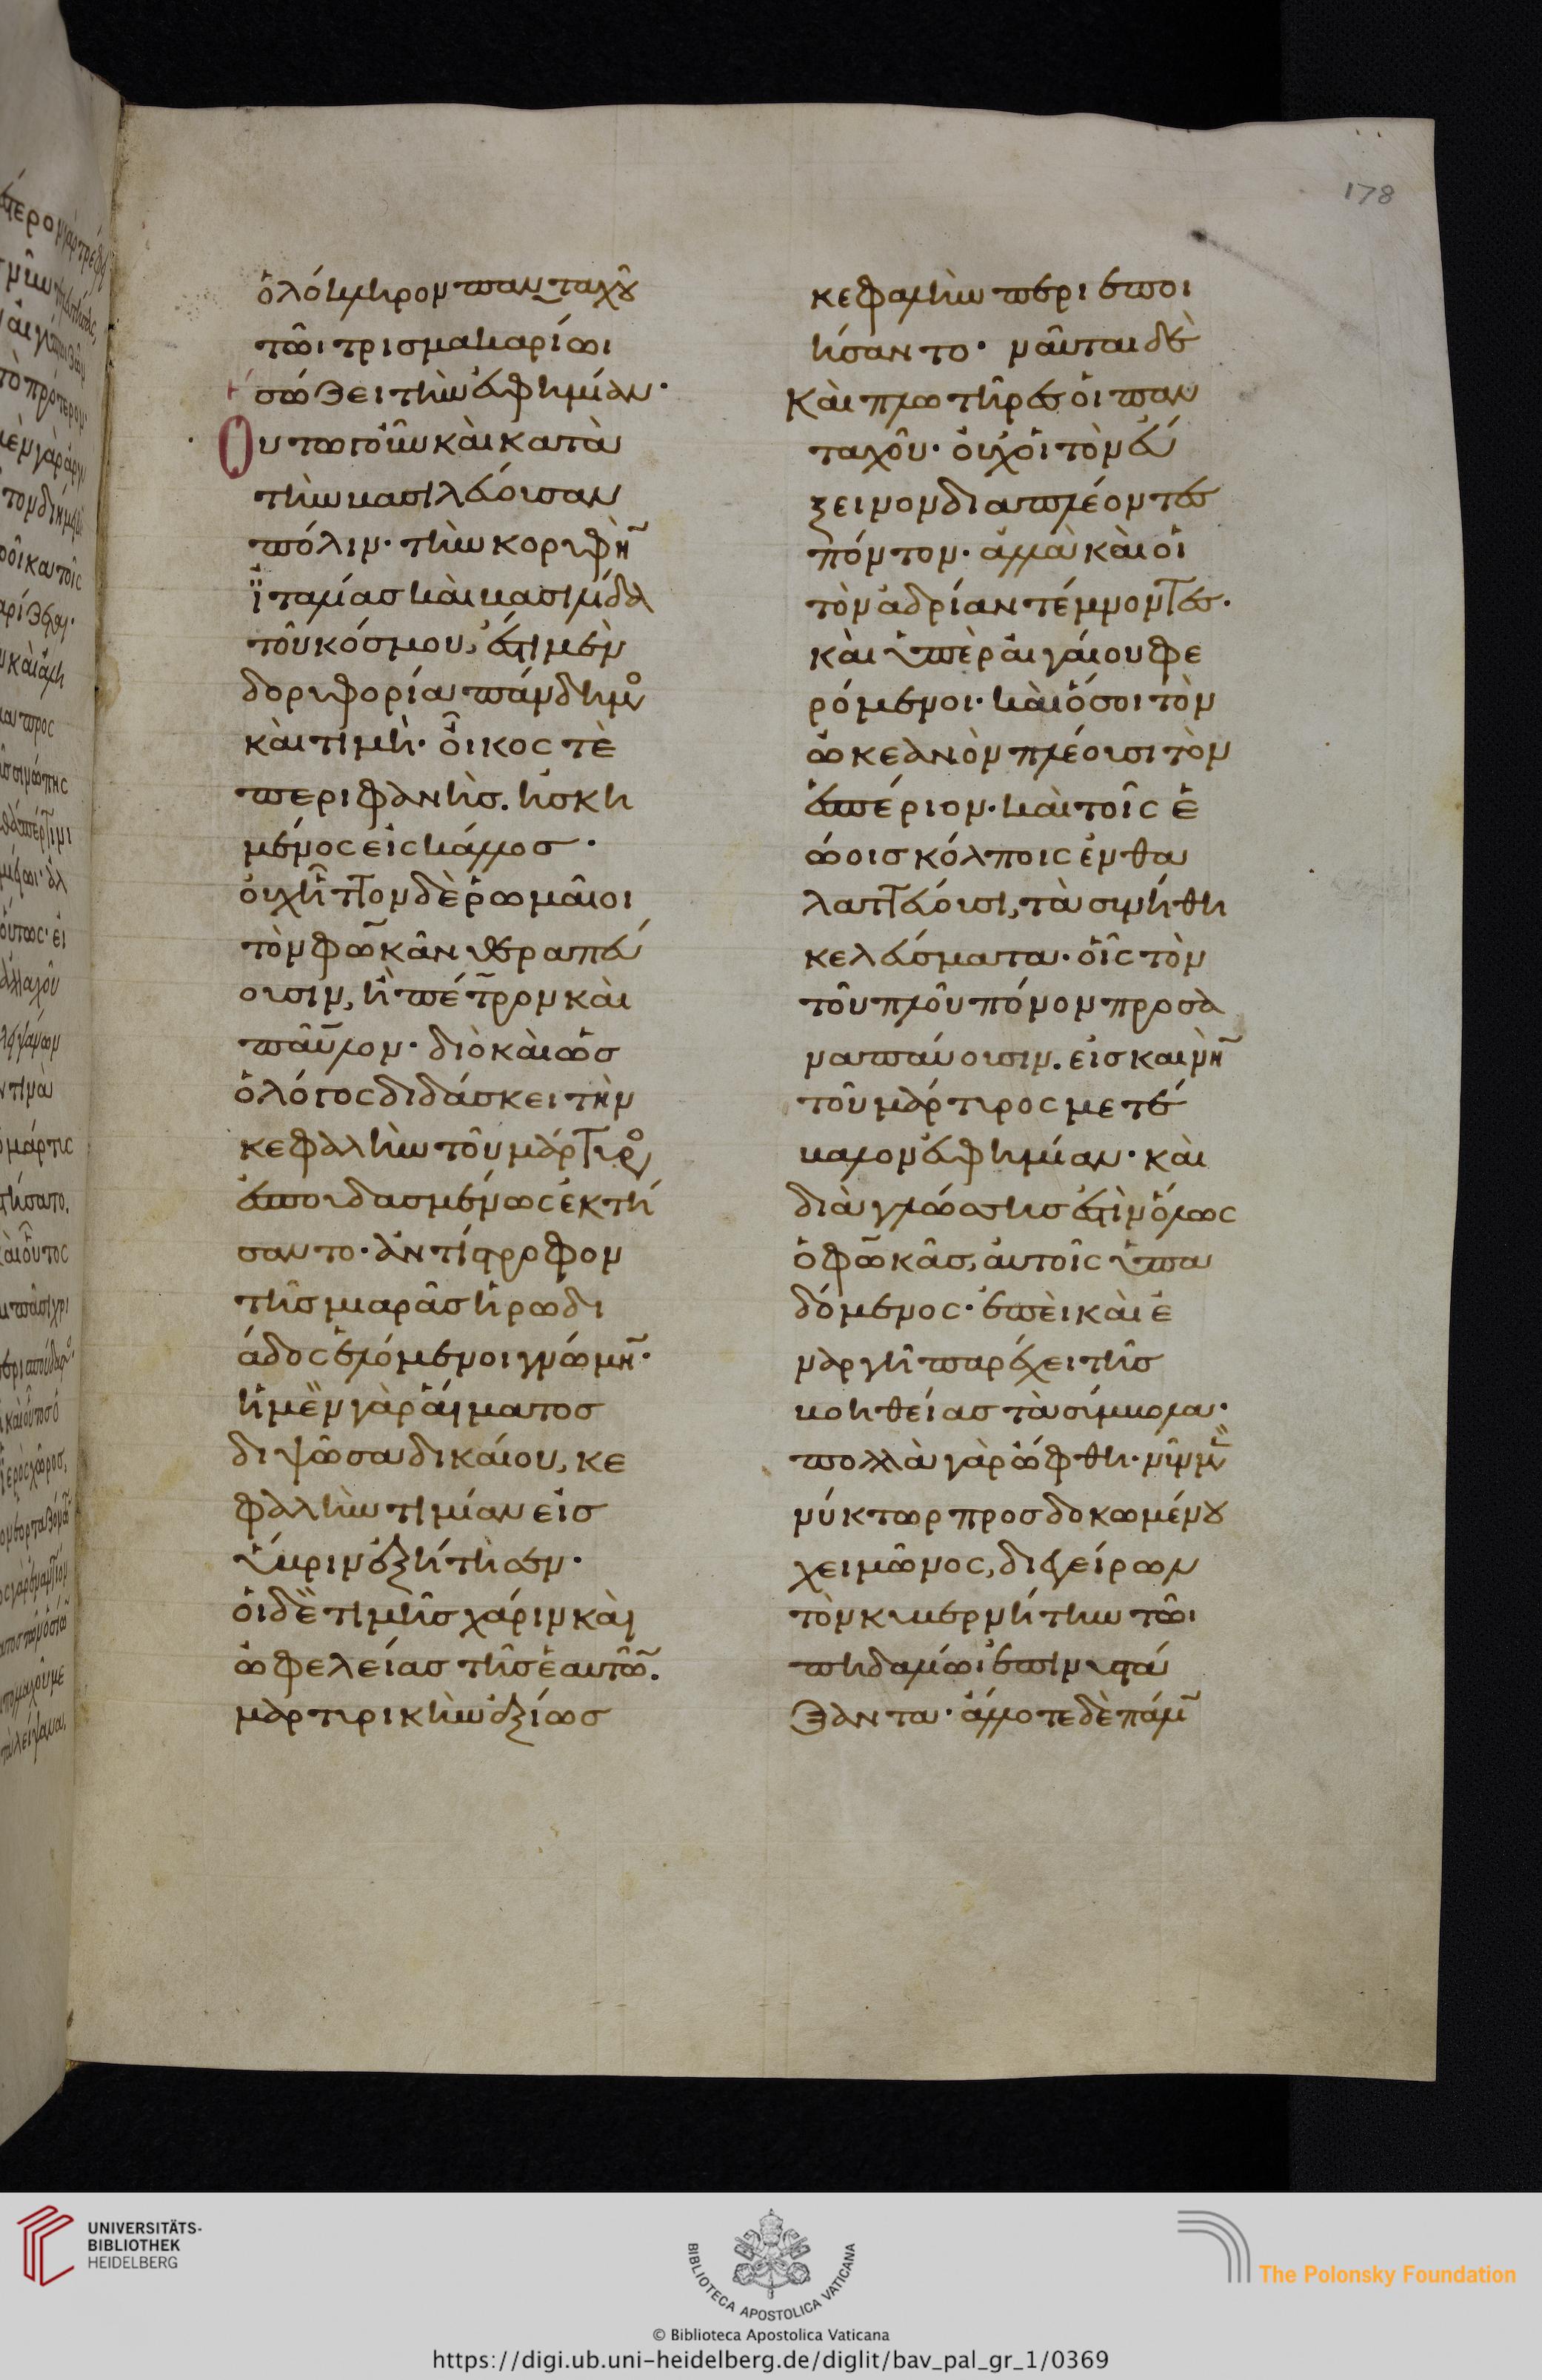 ὁλόκληρον πανταχοῦ
τῶι τρισμακαρίωι
σώζει τὴν εὐφημίαν·
Οὕτω γοῦν καὶ κατὰ
τὴν βασιλεύουσαν
πόλιν· τὴν κορυφὴν
ἰταλίας καὶ βασιλίδα
τοῦ κόσμου, ἐστι μὲν
δορυφορία πάνδημος
καὶ τιμὴ· οἶκος τὲ
περιφανὴς. ἠσκη
μένος εἰς κάλλος·
οὐχ ἧττον δὲ ῥωμαῖοι
τὸν φωκᾶν θεραπεύ
ουσιν, ἢ πέτρον καὶ
παῦλον· διὸ καὶ ὡς
ὁ λόγος διδάσκει τὴν
κεφαλὴν τοῦ μάρτυρος
ἐσπουδασμένως ἐκτή
σαντο· ἀντίστροφον
τῆς μιαρᾶς ἡρωδι
άδος ἑλόμενοι γνώμην·
ἡ μὲν γὰρ αἵματος
διψῶσα δικαίου, κε
φαλὴν τιμίαν εἰς
ὕβριν ἐξήτησεν·
οἱ δὲ τιμῆς χάριν καὶ
ὠφελείας τῆς ἑαυτῶν.
μαρτυρικὴν ἀξίως
178
κεφαλὴν περιεποι
ήσαντο· ναῦται δὲ
καὶ πλωτῆρες οἱ παν
ταχοῦ· οὐχ οἱ τὸν εὔ
ξεινον διαπλέοντες
πόντον· ἀλλὰ καὶ οἱ
τὸν ἀδρίαν τέμνοντες·
καὶ ὑπὲρ αἰγαίου φε
ρόμενοι· καὶ ὅσοι τὸν
ὠκεανὸν πλέουσι τὸν
ἑσπέριον· καὶ τοῖς ἑ
ώοις κόλποις ἐνθα
λαττεύουσι, τὰ συνήθη
κελεύσματα· οἷς τὸν
τοῦ πλοῦ πόνον προσα
ναπαύουσιν. εἰς καινὴν
τοῦ μάρτυρος μετέ
βαλον εὐφημίαν· καὶ
διὰ γλώσσης ἐστὶν ὅλως
ὁ φωκᾶς, αὐτοῖς ὑπα
δόμενος· ἐπεὶ καὶ ἐ
ναργῆ παρέχει τῆς
βοηθείας τὰ σύμβολα·
πολλὰ γὰρ ὤφθη· νῦν μὲν
νύκτωρ προσδοκωμένου
χειμῶνος, διεγείρων
τὸν κυβερνήτην τῶι
πηδαλίωι ἐπινυστά
ζαντα· ἄλλοτε δὲ πάλιν
UNIVERSITÄTS-
BIBLIOTHEK
HEIDELBERG
BIBLIOTECA APOSTOLICA VATICANA
The Polonsky Foundation
© Biblioteca Apostolica Vaticana
https://digi.ub.uni-heidelberg.de/diglit/bav_pal_gr_1/0369